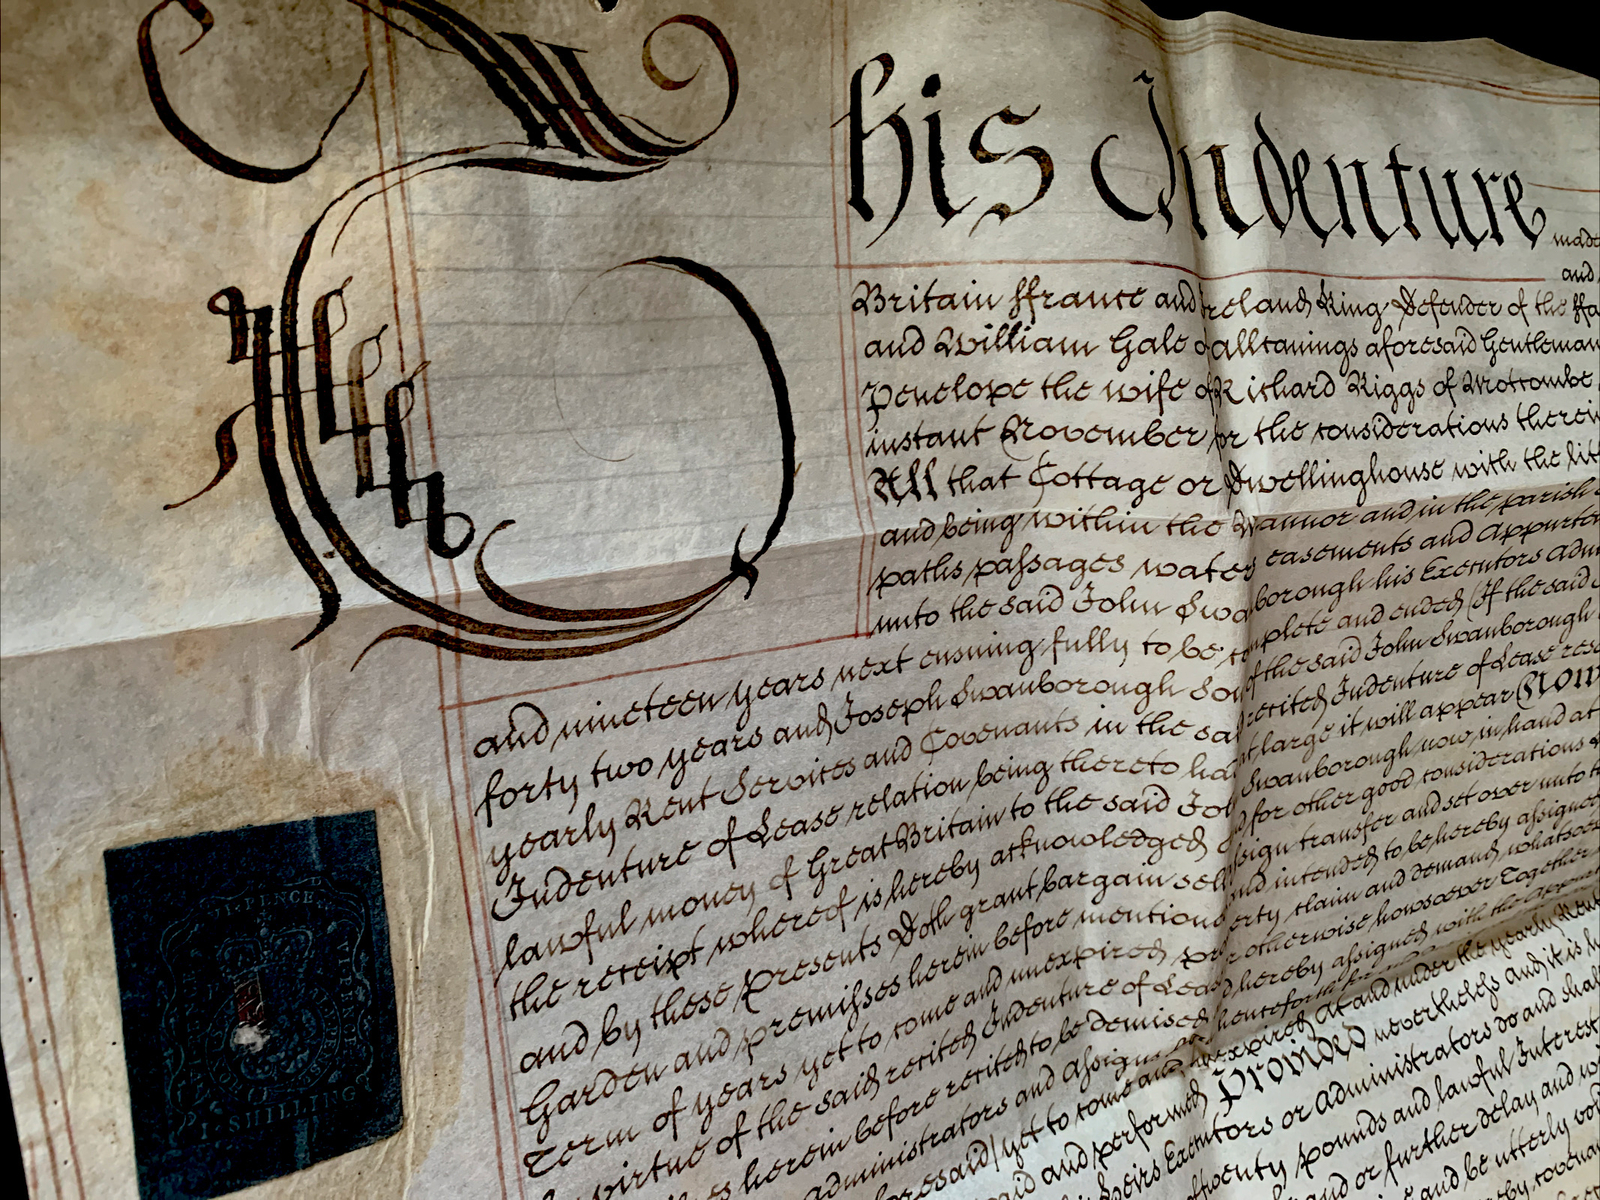 This Indenture made
and
Britain ffrance and Ireland King Defender of the ffa
and William Gale of alltanings aforesaid Gentleman
Penelope the wife of Richard Riggs of Motcombe
instant November for the considerations therein
All that Cottage or Dwellinghouse with the litt
and being within the Mannor and in the parish
paths passages waters easements and Appurten
unto the said John Swanborough his Executors Adm
and nineteen years next ensuing fully to be complete and ended (If the said
forty two years and Joseph Swanborough Son of the said John Swanborough
yearly Rent Services and Covenants in the said recited Indenture of Lease rese
Indenture of Lease relation being thereto had at large it will appear Now
lawful money of Great Britain to the said John Swanborough now in hand at
the receipt whereof is hereby acknowledged and for other good considerations
and by these Presents Doth grant bargain sell assign transfer and set over unto
Garden and premisses herein before mentioned and intended to be hereby assigned
Term of years yet to come and unexpired property claim and demand whatsoe
virtue of the said recited Indenture of Lease or otherwise howsoever Together
herein before recited to be demised hereby assigned with the appurt
Administrators and Assigns henceforth
said yet to come and unexpired At and under the yearly Rent
and performed Provided nevertheless and it is h
heirs Executors or Administrators do and shall
twenty pounds and lawful Interest
and or further delay and
and be utterly voi
SIX PENCE
VI PENCE
I SHILLING